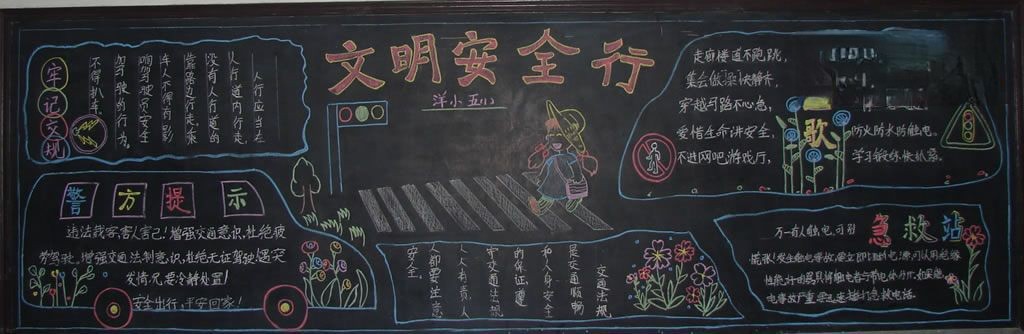 文明安全行
洋小五(1)
牢记交规
人行应当走
人行道内行走,
没有人行道的
靠路边行走。乘
车人不得有影
响驾驶员安全
驾驶的行为。
不得扒车。
警方提示
违法载客害人害己!增强交通意识,杜绝疲
劳驾驶。增强交通法制意识,杜绝无证驾驶!遇突
发情况,要冷静处置!
安全出行,平安回家!
交通法规
是交通顺畅
和人身安全
的保证。遵
守交通法规
人人有责,人
人都要注意
安全。
走廊楼道不跑跳,
集会
穿越马路不心急,
爱惜生命讲安全,
不进网吧游戏厅,
歌
防火防水防触电。
学习锻炼快抓紧。
急救站
万一有人触电,可别
慌张!发生触电事故,要立即切断电源,可以用绝缘
电事故严重,要迅速拨打急救电话。